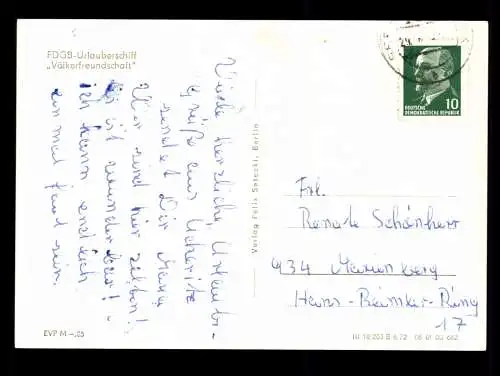 FDGB-Urlauberschiff
„Völkerfreundschaft"
Viele herzliche Urlaubs-
grüße aus Ückeritz
sendet Dir Maria
Wir sind hier zelten!
Es ist wunderbar! -
ich kann endlich
ein mal faul sein.
Verlag Felix Setecki, Berlin
DEUTSCHE
DEMOKRATISCHE REPUBLIK
10
Frl.
Renate Schönherr
934 Marienberg
Hans-Beimler-Ring
17
EVP M -,25
III 18 203 B 6.72 08 01 02 662